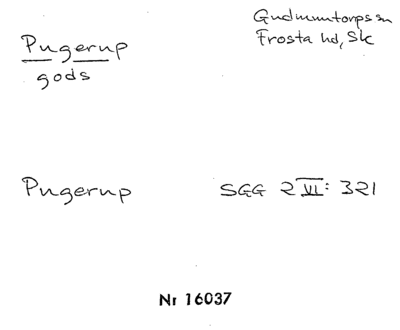 Pugerup
gods
Gudmuntorps sn
Frosta hd, Sk
Pugerup SGG 2 VI: 321
Nr 16037